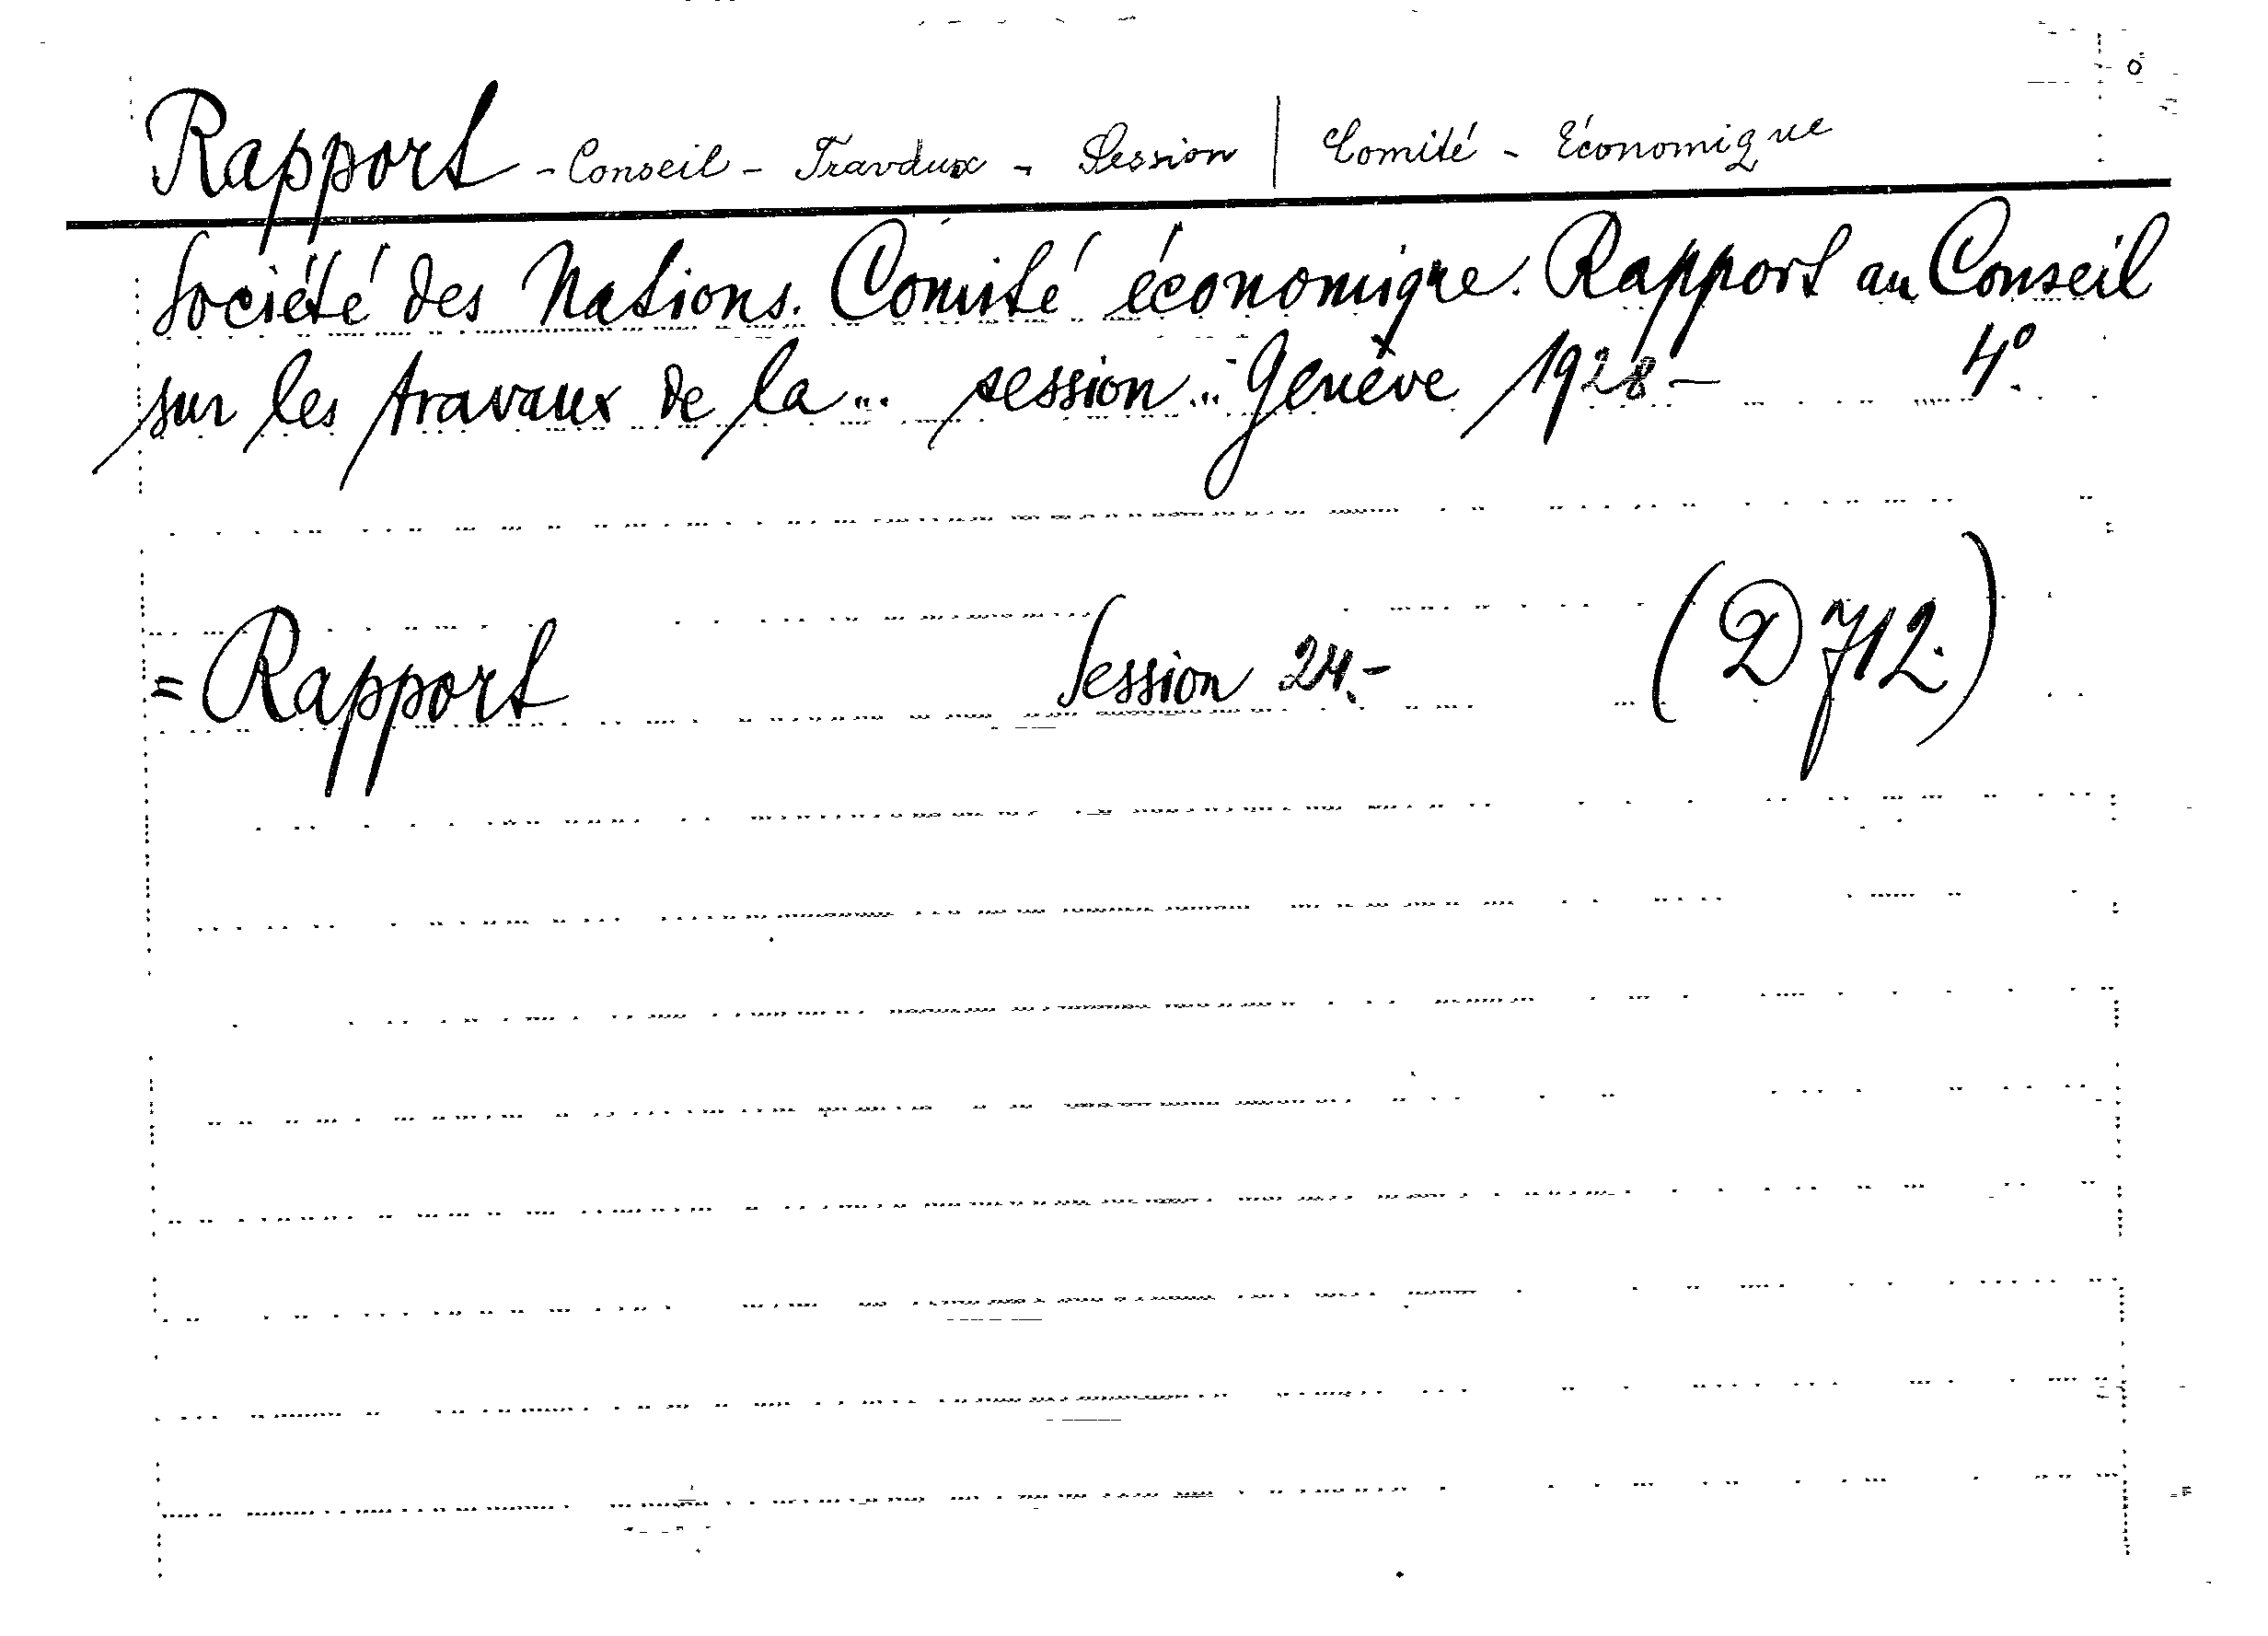 Rapport - Conseil - Travaux - Session | Comité - Économique
Société des Nations. Comité économique. Rapport au Conseil
sur les travaux de la ... session ... Genève 1928 - 4°.
= Rapport Session 24.- (D 712.)